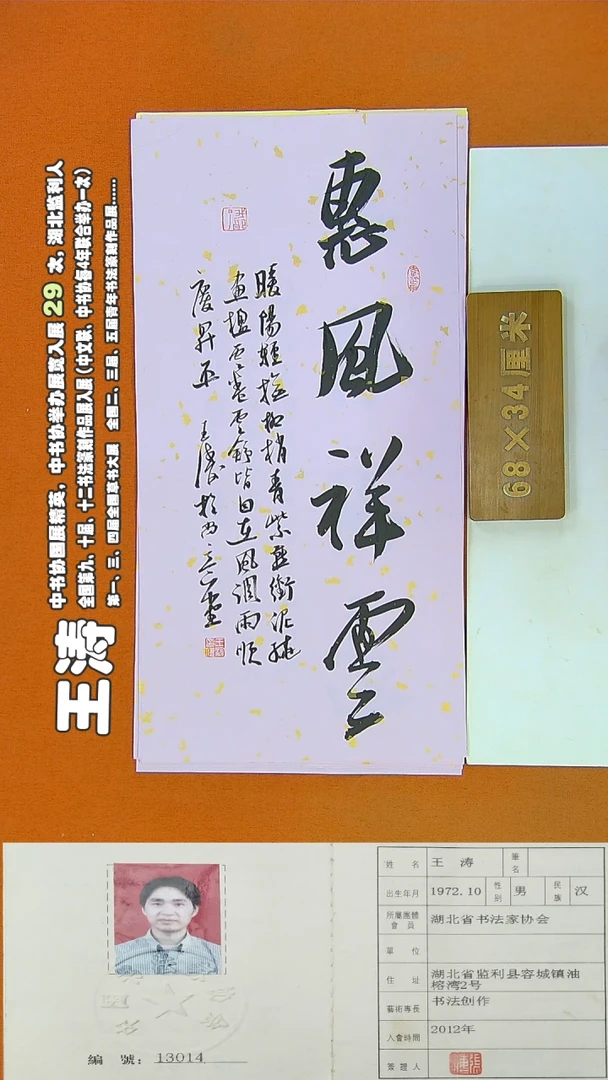 惠风祥云
暖陽輕撫柳梢青紫燕銜泥繞
画楹雲卷雲舒皆自在風調雨順
慶昇平 王濤於西三堂
68×34厘米
王涛
中书协国展精英，中书协举办展赛入展 29 次，湖北监利人
全国第九、十届、十二书法篆刻作品展入展（中文联、中书协每4年联合举办一次）
第一、三、四届全国扇书法大展 全国二、三届、五届青年书法篆刻作品展......
姓名 王涛 筆名
出生年月 1972.10 性别 男 民族 汉
所屬團體會員 湖北省书法家协会
單位
住址 湖北省监利县容城镇油榕湾2号
藝術專長 书法创作
入會時間 2012年
簽證人
編號：13014